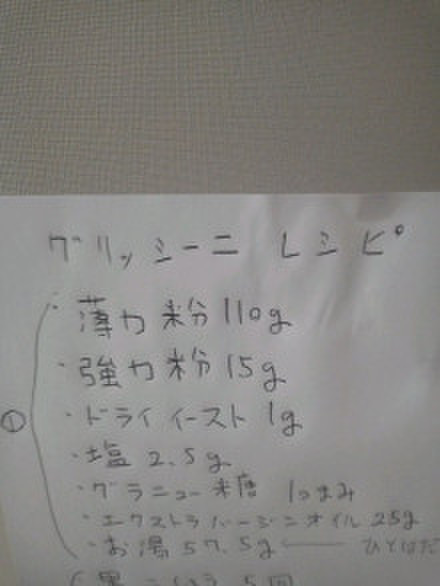 グリッシーニ レシピ
① ・薄力粉 110g
・強力粉 15g
・ドライイースト 1g
・塩 2.5g
・グラニュー糖 1つまみ
・エクストラバージンオイル 25g
・お湯 57.5g ← ひとはだ